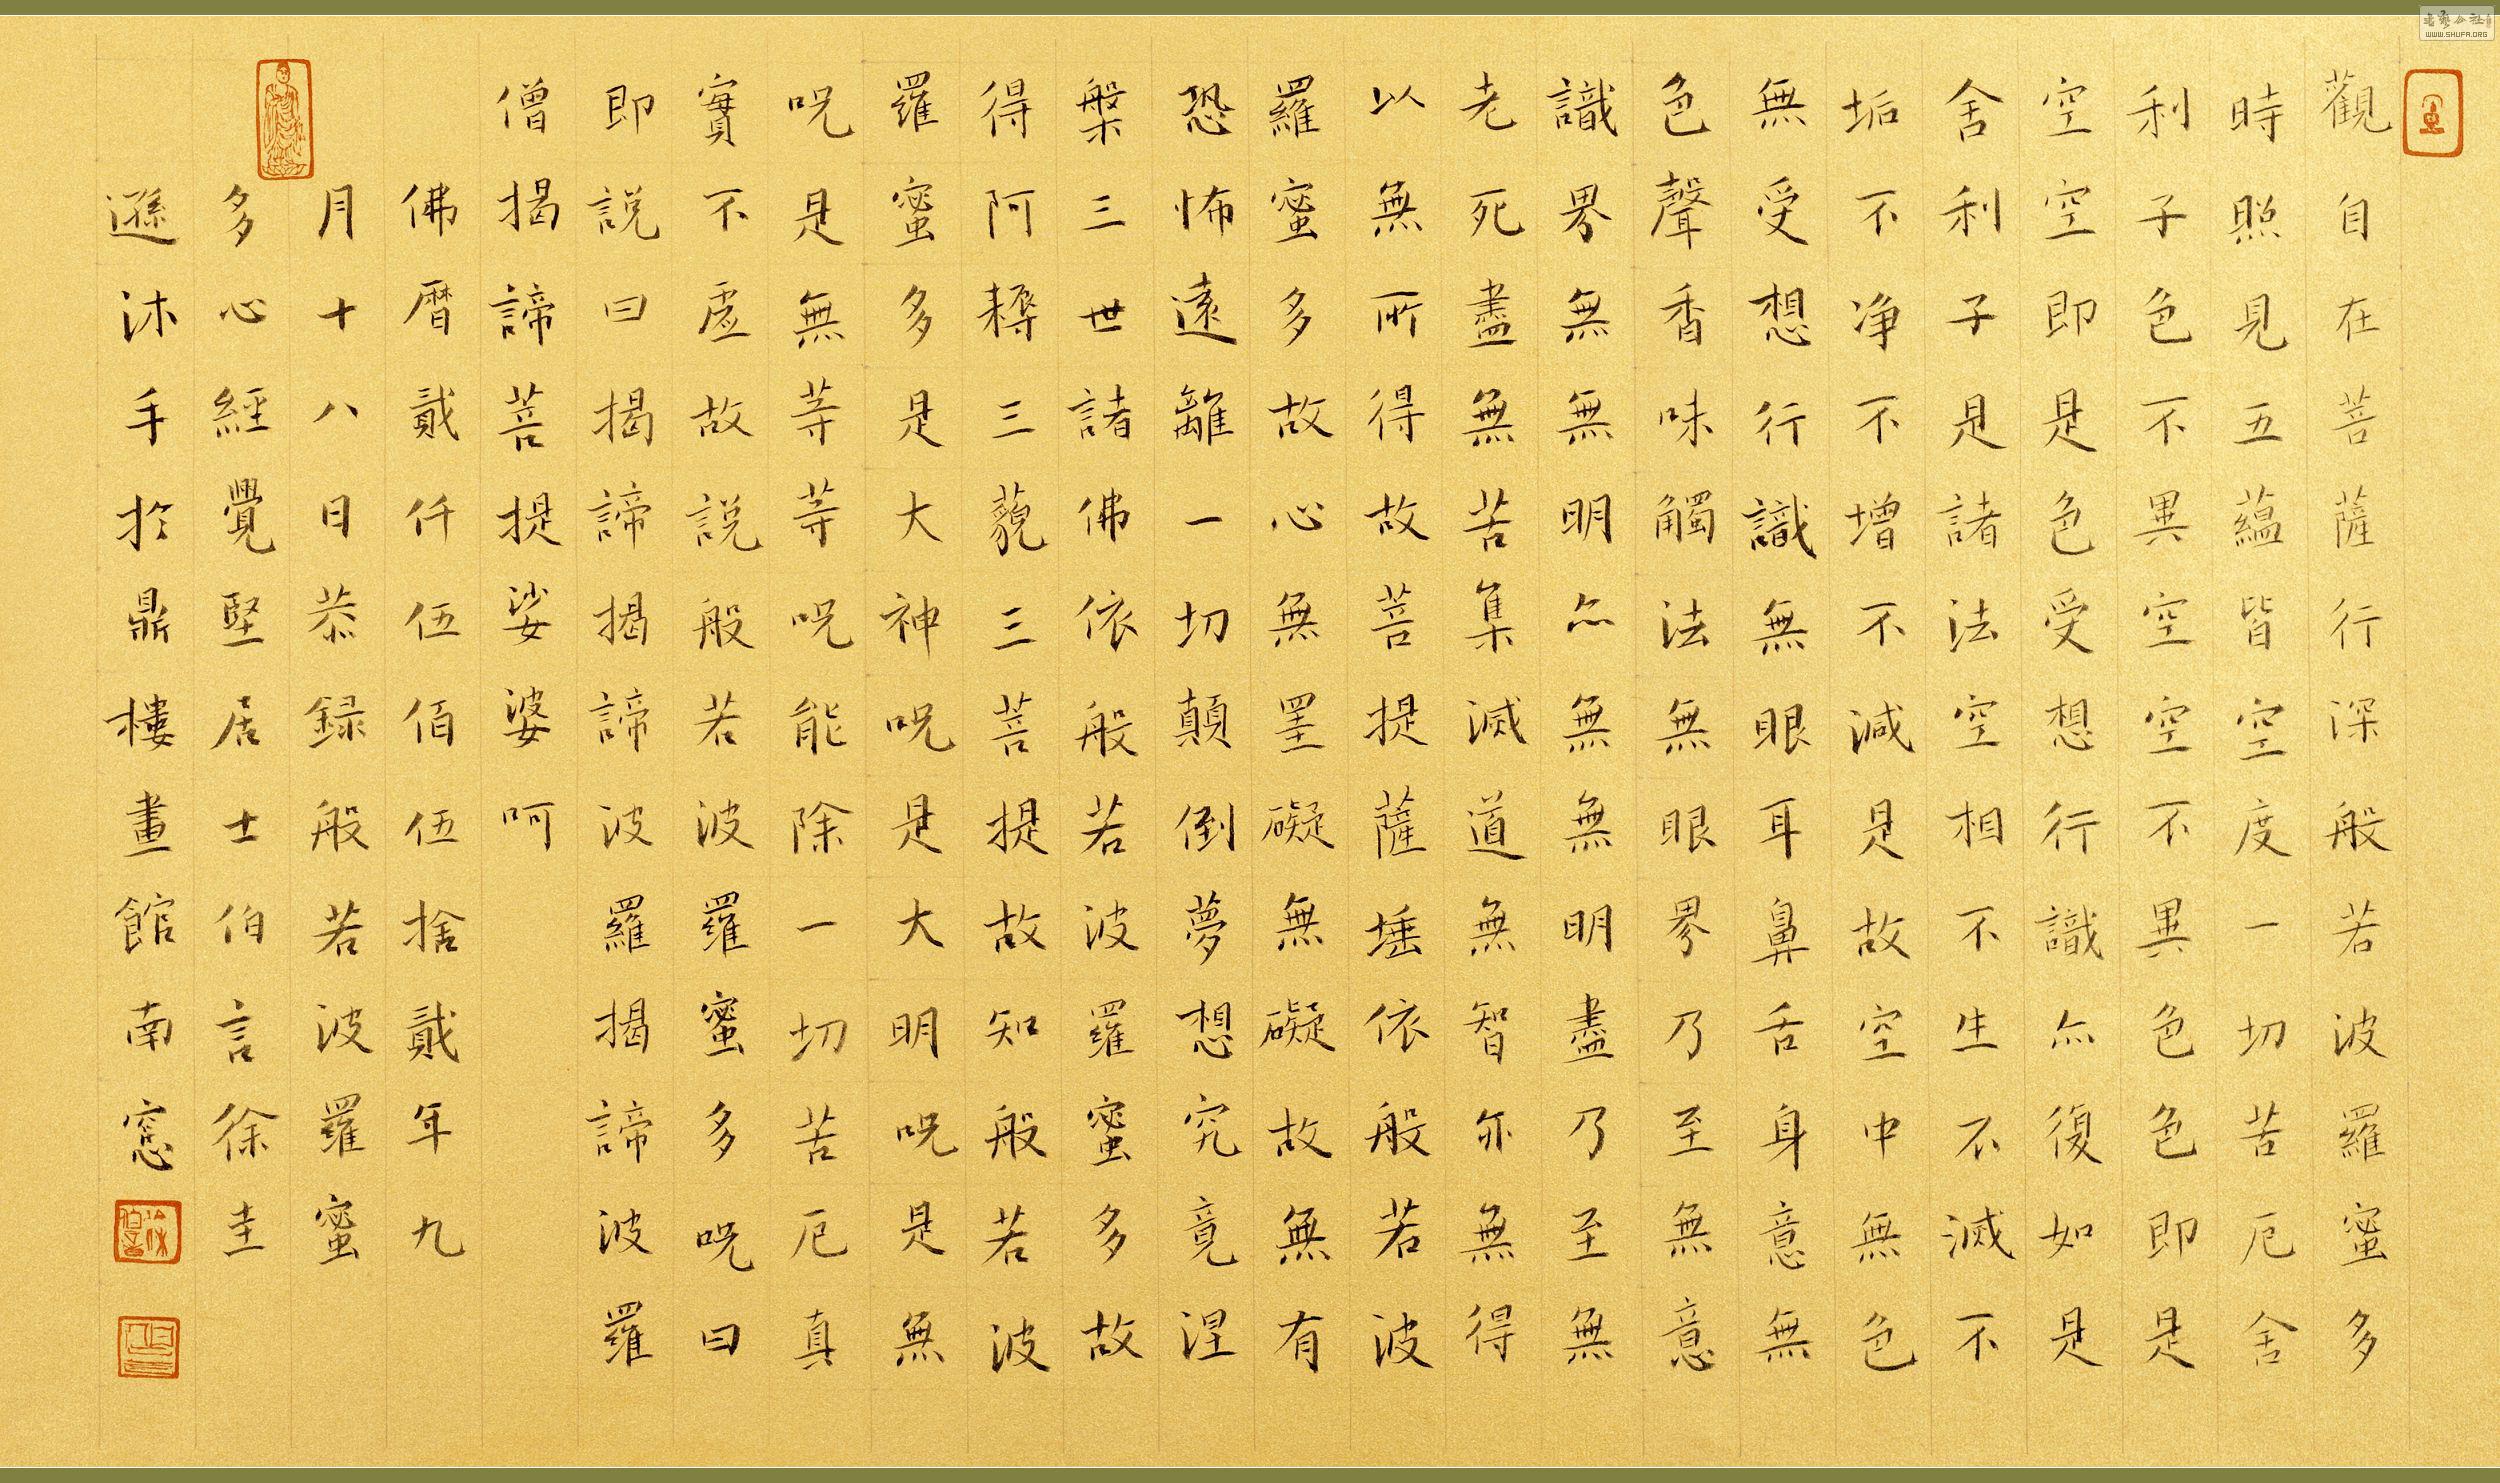 觀自在菩薩行深般若波羅蜜多
時照見五蘊皆空度一切苦厄舍
利子色不異空空不異色色即是
空空即是色受想行識亦復如是
舍利子是諸法空相不生不滅不
垢不净不增不減是故空中無色
無受想行識無眼耳鼻舌身意無
色聲香味觸法無眼界乃至無意
識界無無明亦無無明盡乃至無
老死盡無苦集滅道無智亦無得
以無所得故菩提薩埵依般若波
羅蜜多故心無罣礙無礙故無有
恐怖遠離一切顛倒夢想究竟涅
槃三世諸佛依般若波羅蜜多故
得阿耨三藐三菩提故知般若波
羅蜜多是大神呪是大明呪是無
呪是無等等呪能除一切苦厄真
實不虛故説般若波羅蜜多呪曰
即説曰揭諦揭諦波羅揭諦波羅
僧揭諦菩提娑婆呵
佛曆貳仟伍佰伍捨貳年九
月十八日恭録般若波羅蜜
多心經覺堅居士伯言徐圭
遜沐手於鼎樓畫館南窓
WWW.SHUFA.ORG